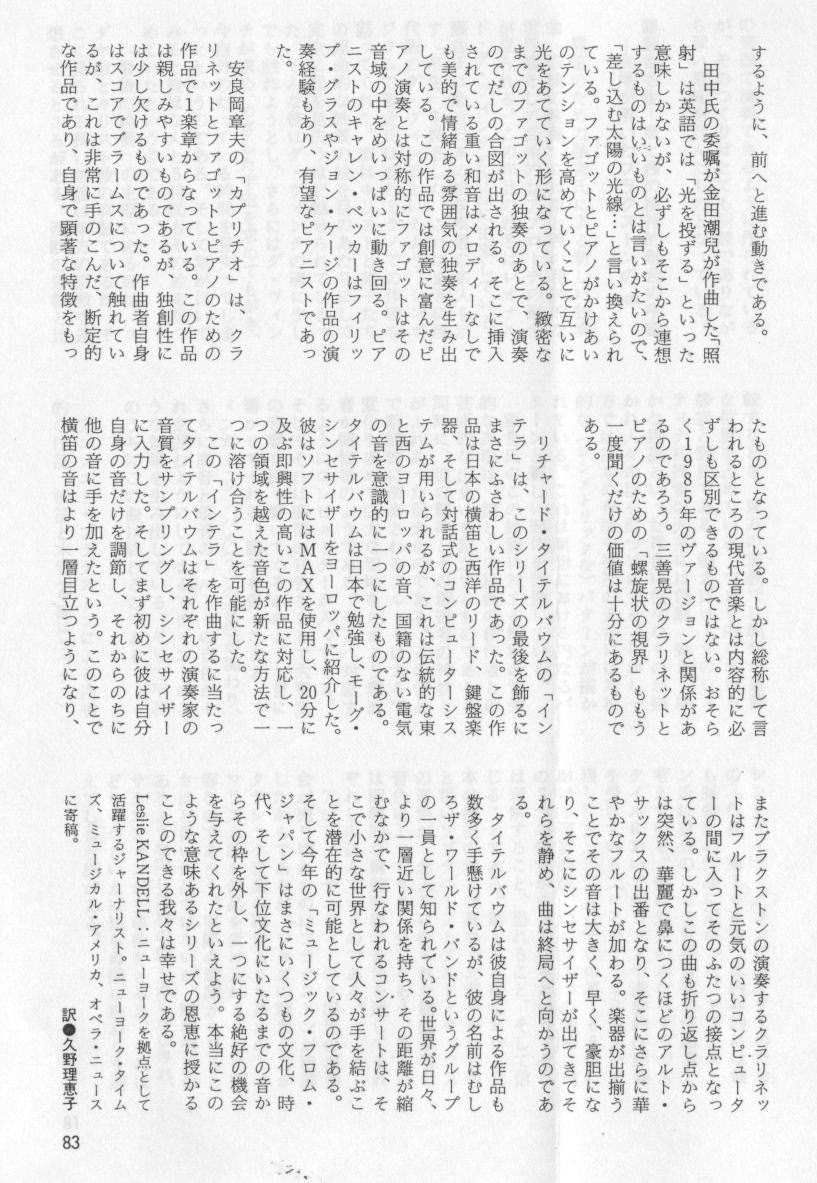 するように、前へと進む動きである。
　田中氏の委嘱が金田潮兒が作曲した「照
射」は英語では「光を投ずる」といった
意味しかないが、必ずしもそこから連想
するものはいいものとは言いがたいので、
「差し込む太陽の光線…」と言い換えられ
ている。ファゴットとピアノがかけあい
のテンションを高めていくことで互いに
光をあてていく形になっている。緻密な
までのファゴットの独奏のあとで、演奏
のでだしの合図が出される。そこに挿入
されている重い和音はメロディーなしで
も美的で情緒ある雰囲気の独奏を生み出
している。この作品では創意に富んだピ
アノ演奏とは対称的にファゴットはその
音域の中をめいっぱいに動き回る。ピア
ニストのキャレン・ベッカーはフィリッ
プ・グラスやジョン・ケージの作品の演
奏経験もあり、有望なピアニストであっ
た。
　安良岡章夫の「カプリチオ」は、クラ
リネットとファゴットとピアノのための
作品で1楽章からなっている。この作品
は親しみやすいものであるが、独創性に
は少し欠けるものであった。作曲者自身
はスコアでブラームスについて触れてい
るが、これは非常に手のこんだ、断定的
な作品であり、自身で顕著な特徴をもっ
たものとなっている。しかし総称して言
われるところの現代音楽とは内容的に必
ずしも区別できるものではない。おそら
く1985年のヴァージョンと関係があ
るのであろう。三善晃のクラリネットと
ピアノのための「螺旋状の視界」ももう
一度聞くだけの価値は十分にあるもので
ある。
　リチャード・タイテルバウムの「イン
テラ」は、このシリーズの最後を飾るに
まさにふさわしい作品であった。この作
品は日本の横笛と西洋のリード、鍵盤楽
器、そして対話式のコンピューターシス
テムが用いられるが、これは伝統的な東
と西のヨーロッパの音、国籍のない電気
の音を意識的に一つにしたものである。
タイテルバウムは日本で勉強し、モーグ・
シンセサイザーをヨーロッパに紹介した。
彼はソフトにはMAXを使用し、20分に
及ぶ即興性の高いこの作品に対応し、一
つの領域を越えた音色が新たな方法で一
つに溶け合うことを可能にした。
　この「インテラ」を作曲するに当たっ
てタイテルバウムはそれぞれの演奏家の
音質をサンプリングし、シンセサイザー
に入力した。そしてまず初めに彼は自分
自身の音だけを調節し、それからのちに
他の音に手を加えたという。このことで
横笛の音はより一層目立つようになり、
またブラクストンの演奏するクラリネッ
トはフルートと元気のいいコンピュータ
ーの間に入ってそのふたつの接点となっ
ている。しかしこの曲も折り返し点から
は突然、華麗で鼻につくほどのアルト・
サックスの出番となり、そこにさらに華
やかなフルートが加わる。楽器が出揃う
ことでその音は大きく、早く、豪胆にな
り、そこにシンセサイザーが出てきてそ
れらを静め、曲は終局へと向かうのであ
る。
　タイテルバウムは彼自身による作品も
数多く手懸けているが、彼の名前はむし
ろザ・ワールド・バンドというグループ
の一員として知られている。世界が日々、
より一層近い関係を持ち、その距離が縮
むなかで、行なわれるコンサートは、そ
こで小さな世界として人々が手を結ぶこ
とを潜在的に可能としているのである。
そして今年の「ミュージック・フロム・
ジャパン」はまさにいくつもの文化、時
代、そして下位文化にいたるまでの音か
らその枠を外し、一つにする絶好の機会
を与えてくれたといえよう。本当にこの
ような意味あるシリーズの恩恵に授かる
ことのできる我々は幸せである。
Leslie KANDELL：ニューヨークを拠点として
活躍するジャーナリスト。ニューヨーク・タイム
ズ、ミュージカル・アメリカ、オペラ・ニュース
に寄稿。
訳●久野理恵子
83